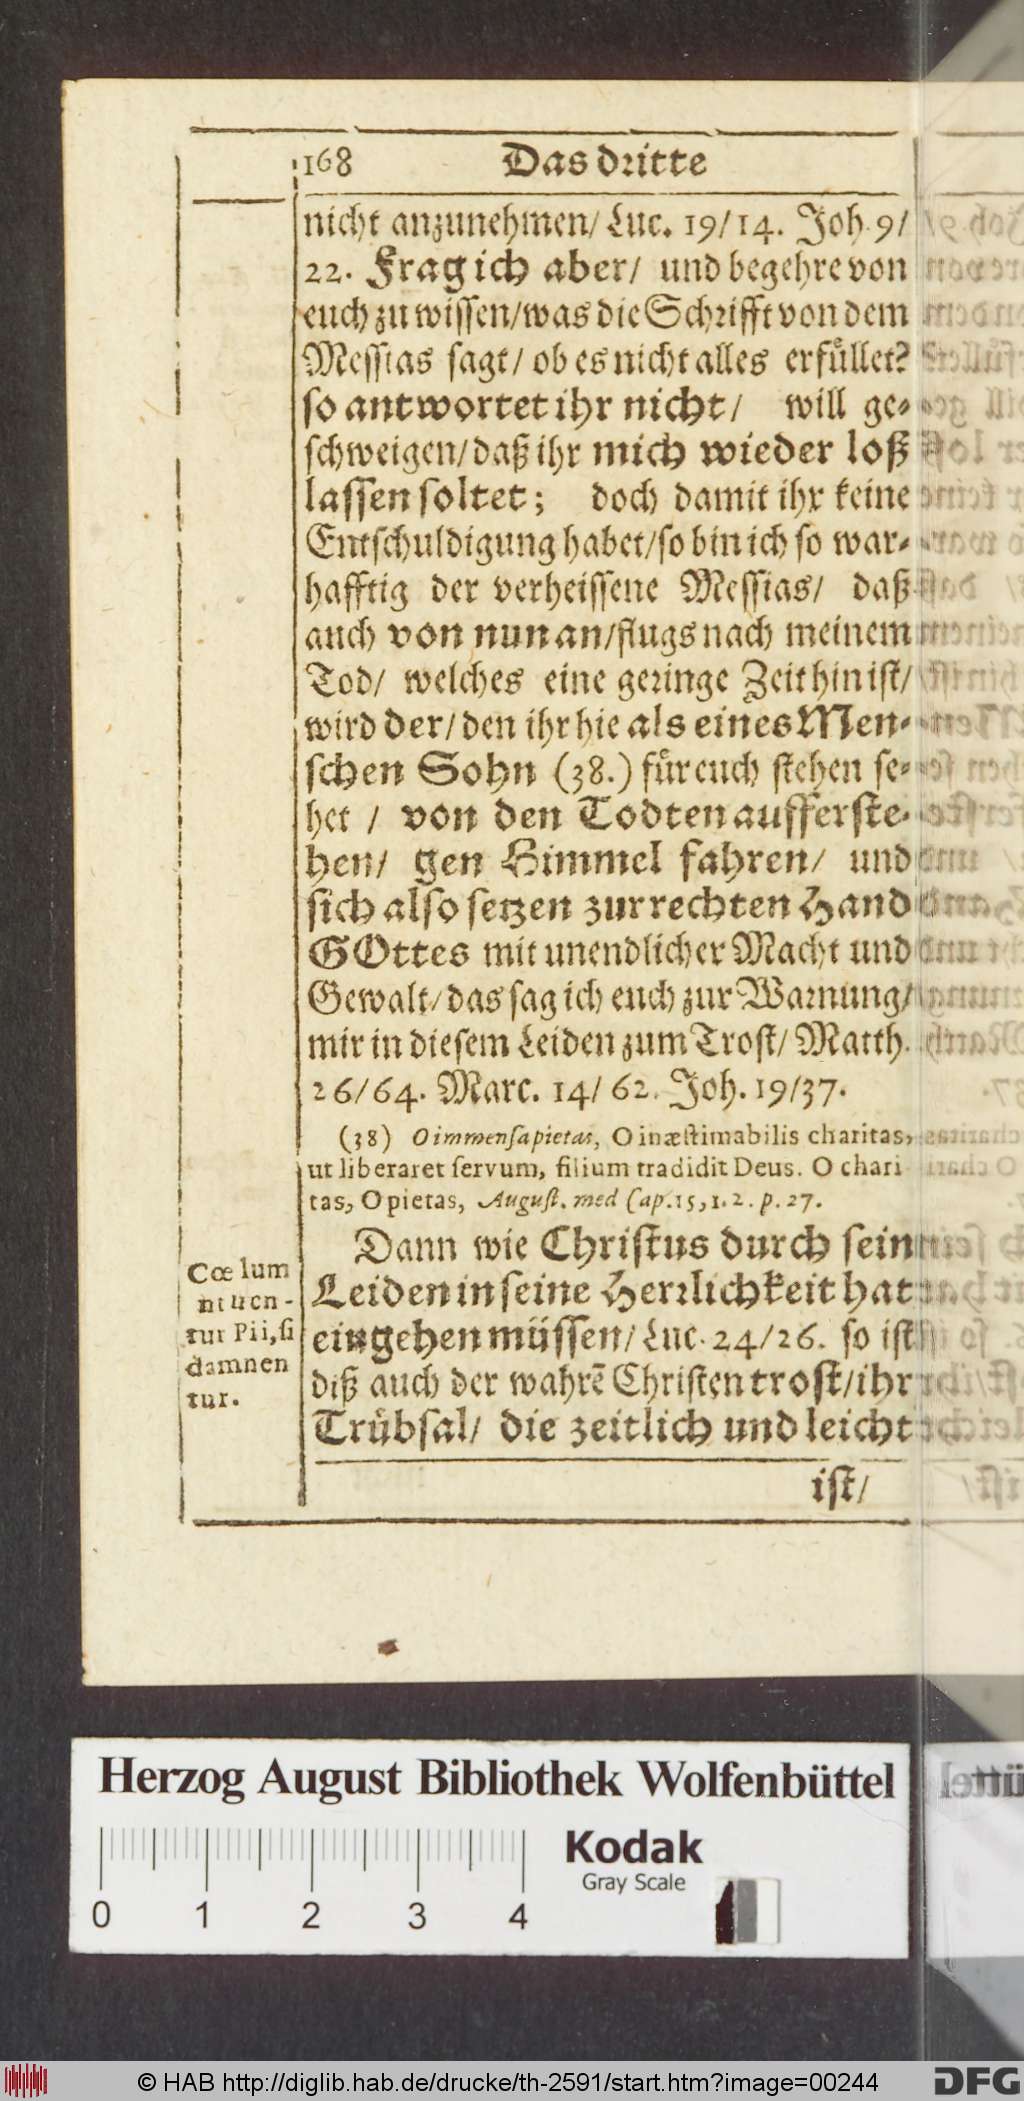 168 Das dritte
nicht anzunehmen/ Luc. 19/14. Joh. 9/
22. Frag ich aber/ und begehre von
euch zu wissen/was die Schrifft von dem
Messias sagt/ ob es nicht alles erfüllet?
so antwortet ihr nicht/ will ge-
schweigen/daß ihr mich wieder loß
lassen soltet; doch damit ihr keine
Entschuldigung habet/so bin ich so war-
hafftig der verheissene Messias/ daß
auch von nun an/flugs nach meinem
Tod/ welches eine geringe Zeit hin ist/
wird der/den ihr hie als eines Men-
schen Sohn (38.) für euch stehen se-
het / von den Todten aufferste-
hen/ gen Himmel fahren/ und
sich also setzen zur rechten Hand
GOttes mit unendlicher Macht und
Gewalt/das sag ich euch zur Warnung/
mir in diesem Leiden zum Trost/ Matth.
26/64. Marc. 14/62. Joh. 19/37.
(38) O immensa pietas, O inæstimabilis charitas,
ut liberaret servum, filium tradidit Deus. O chari
tas, O pietas, August. med Cap. 15, 1. 2. p. 27.
Dann wie Christus durch sein
Leiden in seine Herrlichkeit hat
eingehen müssen/ Luc. 24/26. so ist
diß auch der wahrē Christen trost/ihr
Trübsal/ die zeitlich und leicht
ist/
Cœlum
ntuen-
tur Pii, si
damnen
tur.
Herzog August Bibliothek Wolfenbüttel
Kodak
Gray Scale
0 1 2 3 4
© HAB http://diglib.hab.de/drucke/th-2591/start.htm?image=00244
DFG